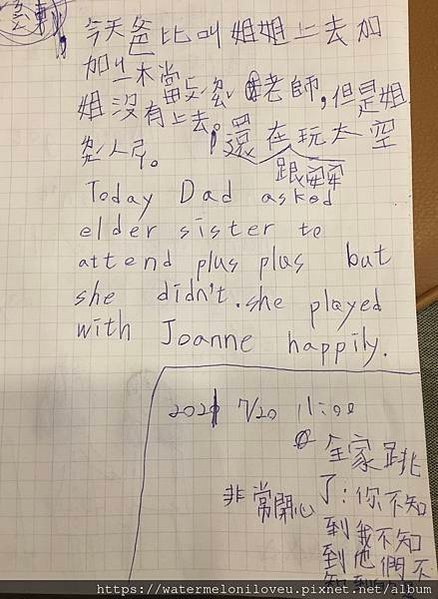 今天爸比叫姐姐上去加
加
老師,但是姐
姐沒有上去。還在玩太空
跟
Today Dad asked
elder sister to
attend plus plus but
she didn't.she played
with Joanne happily.
2021 7/20 11:00
全家跳
非常開心
了:你不知
到我不知
到他們不
https://watermeloniloveu.pixnet.net/album